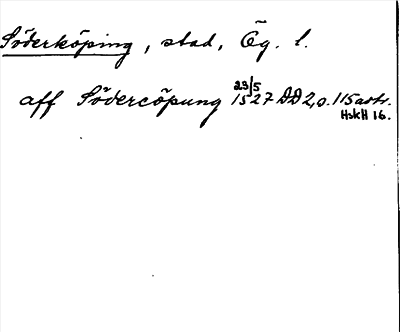 Söderköping, stad, Ög. l.
23/5
aff Södercöpung 1527 DD 2, o. 115 astr.
HskH 16.